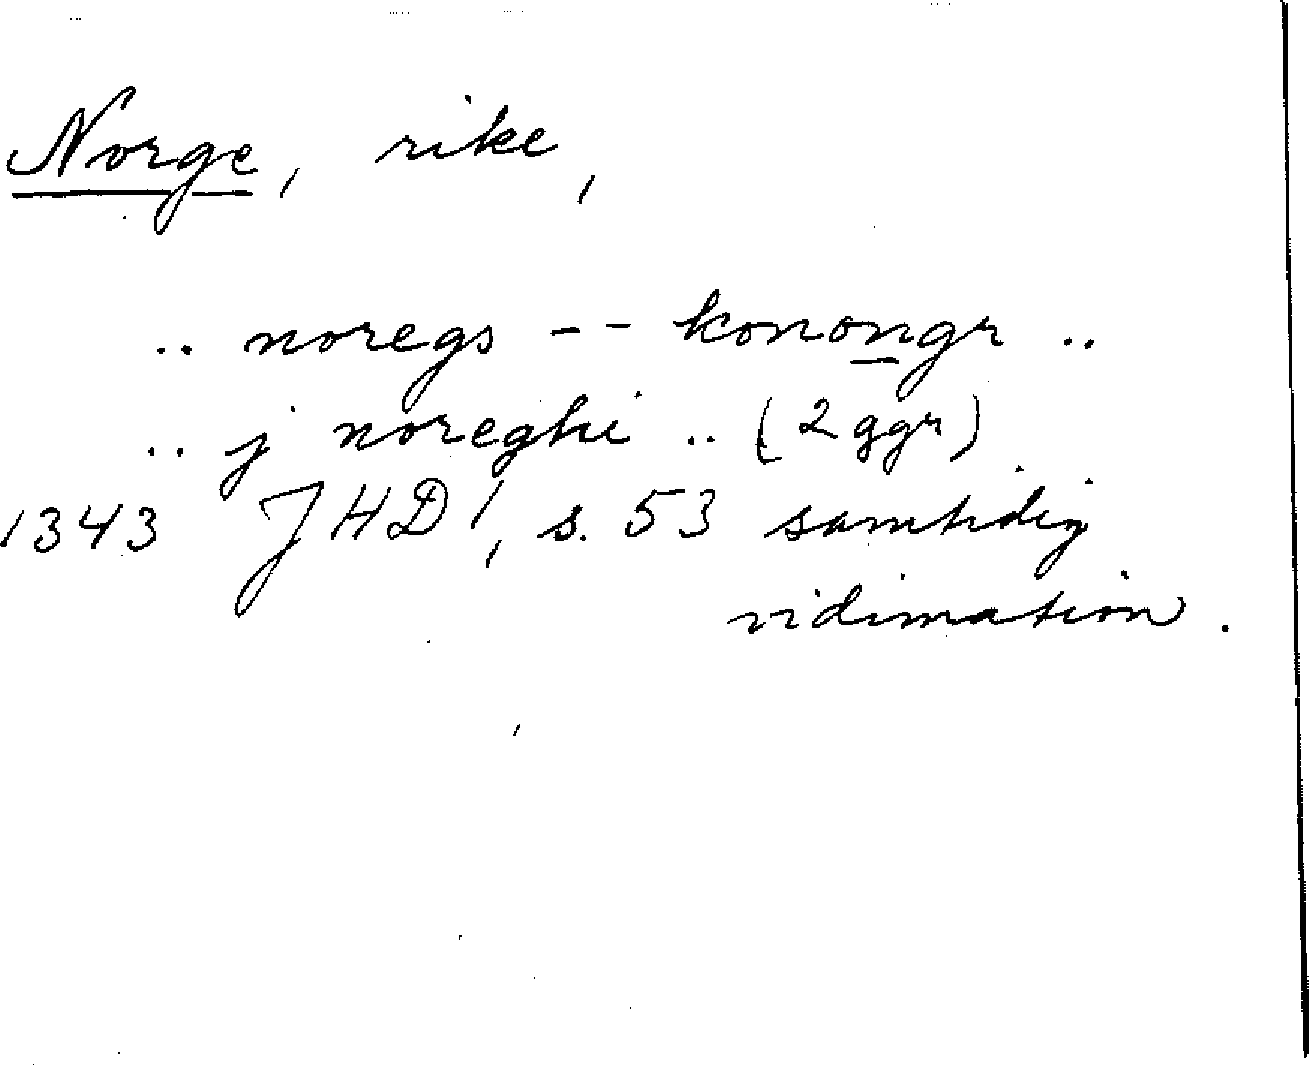 Norge, rike,
.. noregs -- konongr ..
.. j noreghi .. (2 ggr)
1343 JHD 1, s. 53 samtidig
vidimation.